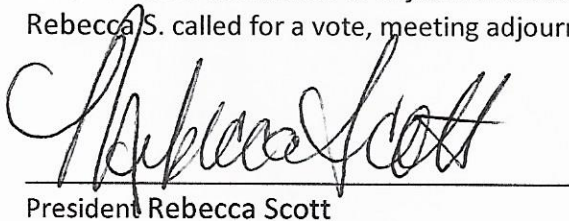 Rebecca S. called for a vote, meeting adjourn
Rebecca Scott
President Rebecca Scott